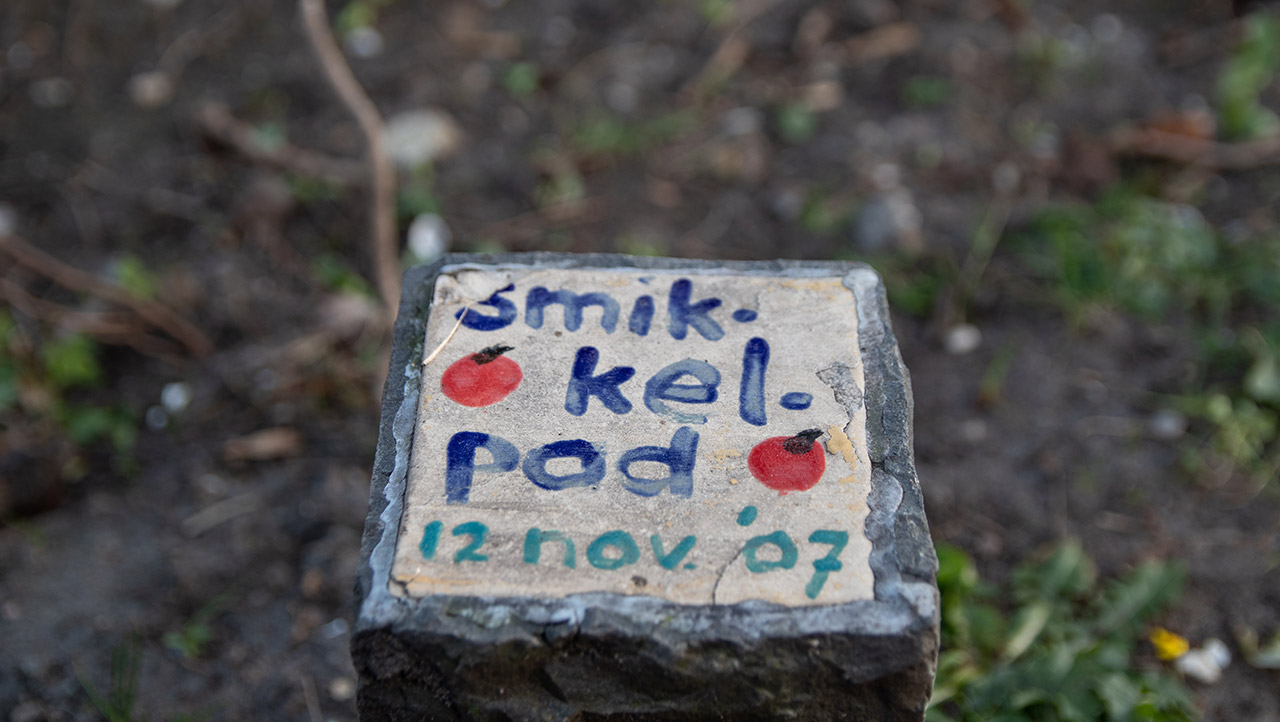 smik.
kel.
pod
12 nov. '07